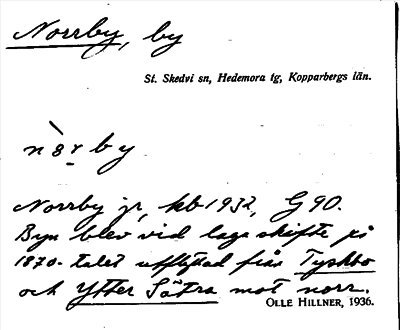 Norrby, by
St. Skedvi sn, Hedemora tg, Kopparbergs län.
nòrby
Norrby jr, kb 1932, G 90.
Byn blev vid laga skifte på
1870-talet utflyttad från Tyskbo
och Ytter Sätra mot norr.
OLLE HILLNER, 1936.